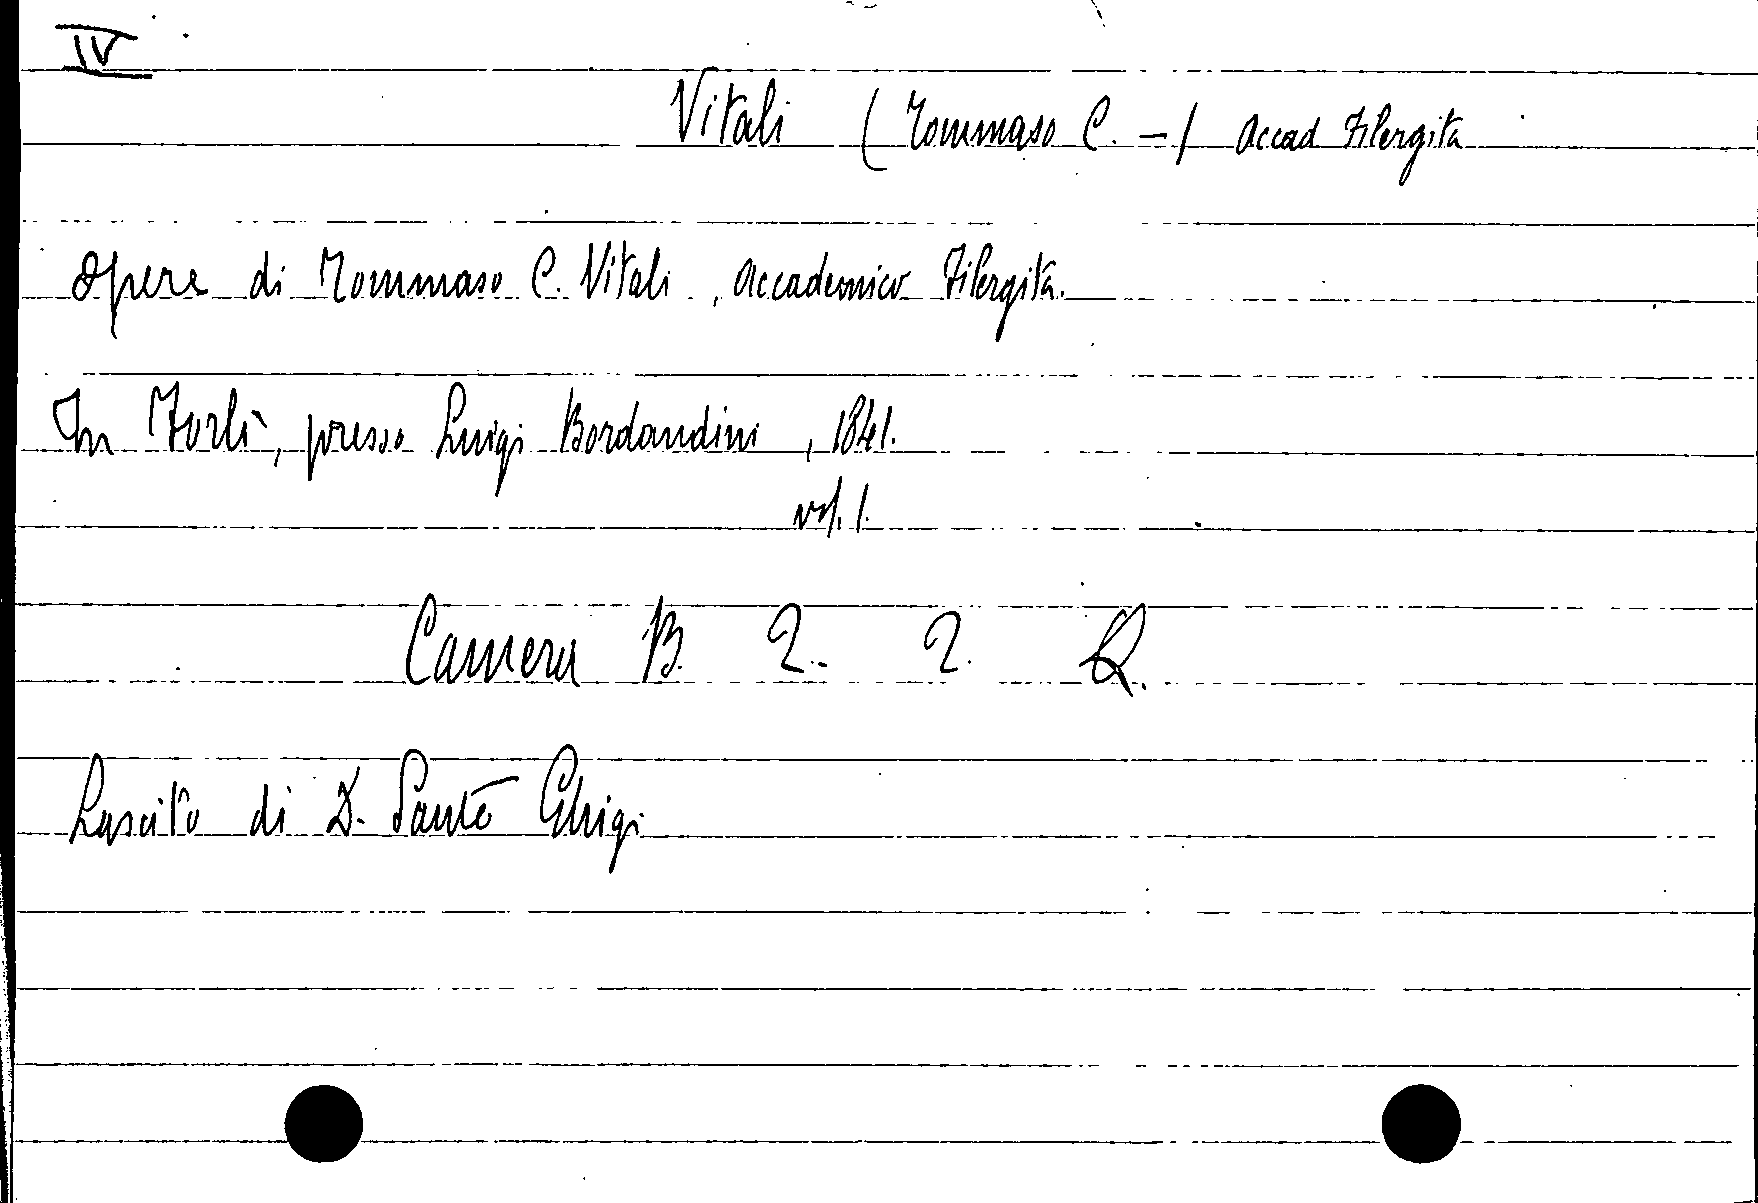 IV
Vitali (Tommaso C. -) Accad Filergita
Opere di Tommaso C. Vitali, Accademico Filergita.
In Forlì, presso Luigi Bordandini, 1841.
vol. 1.
Camera B. 2. 2. Q.
Lascito di D. Sante Ghigi